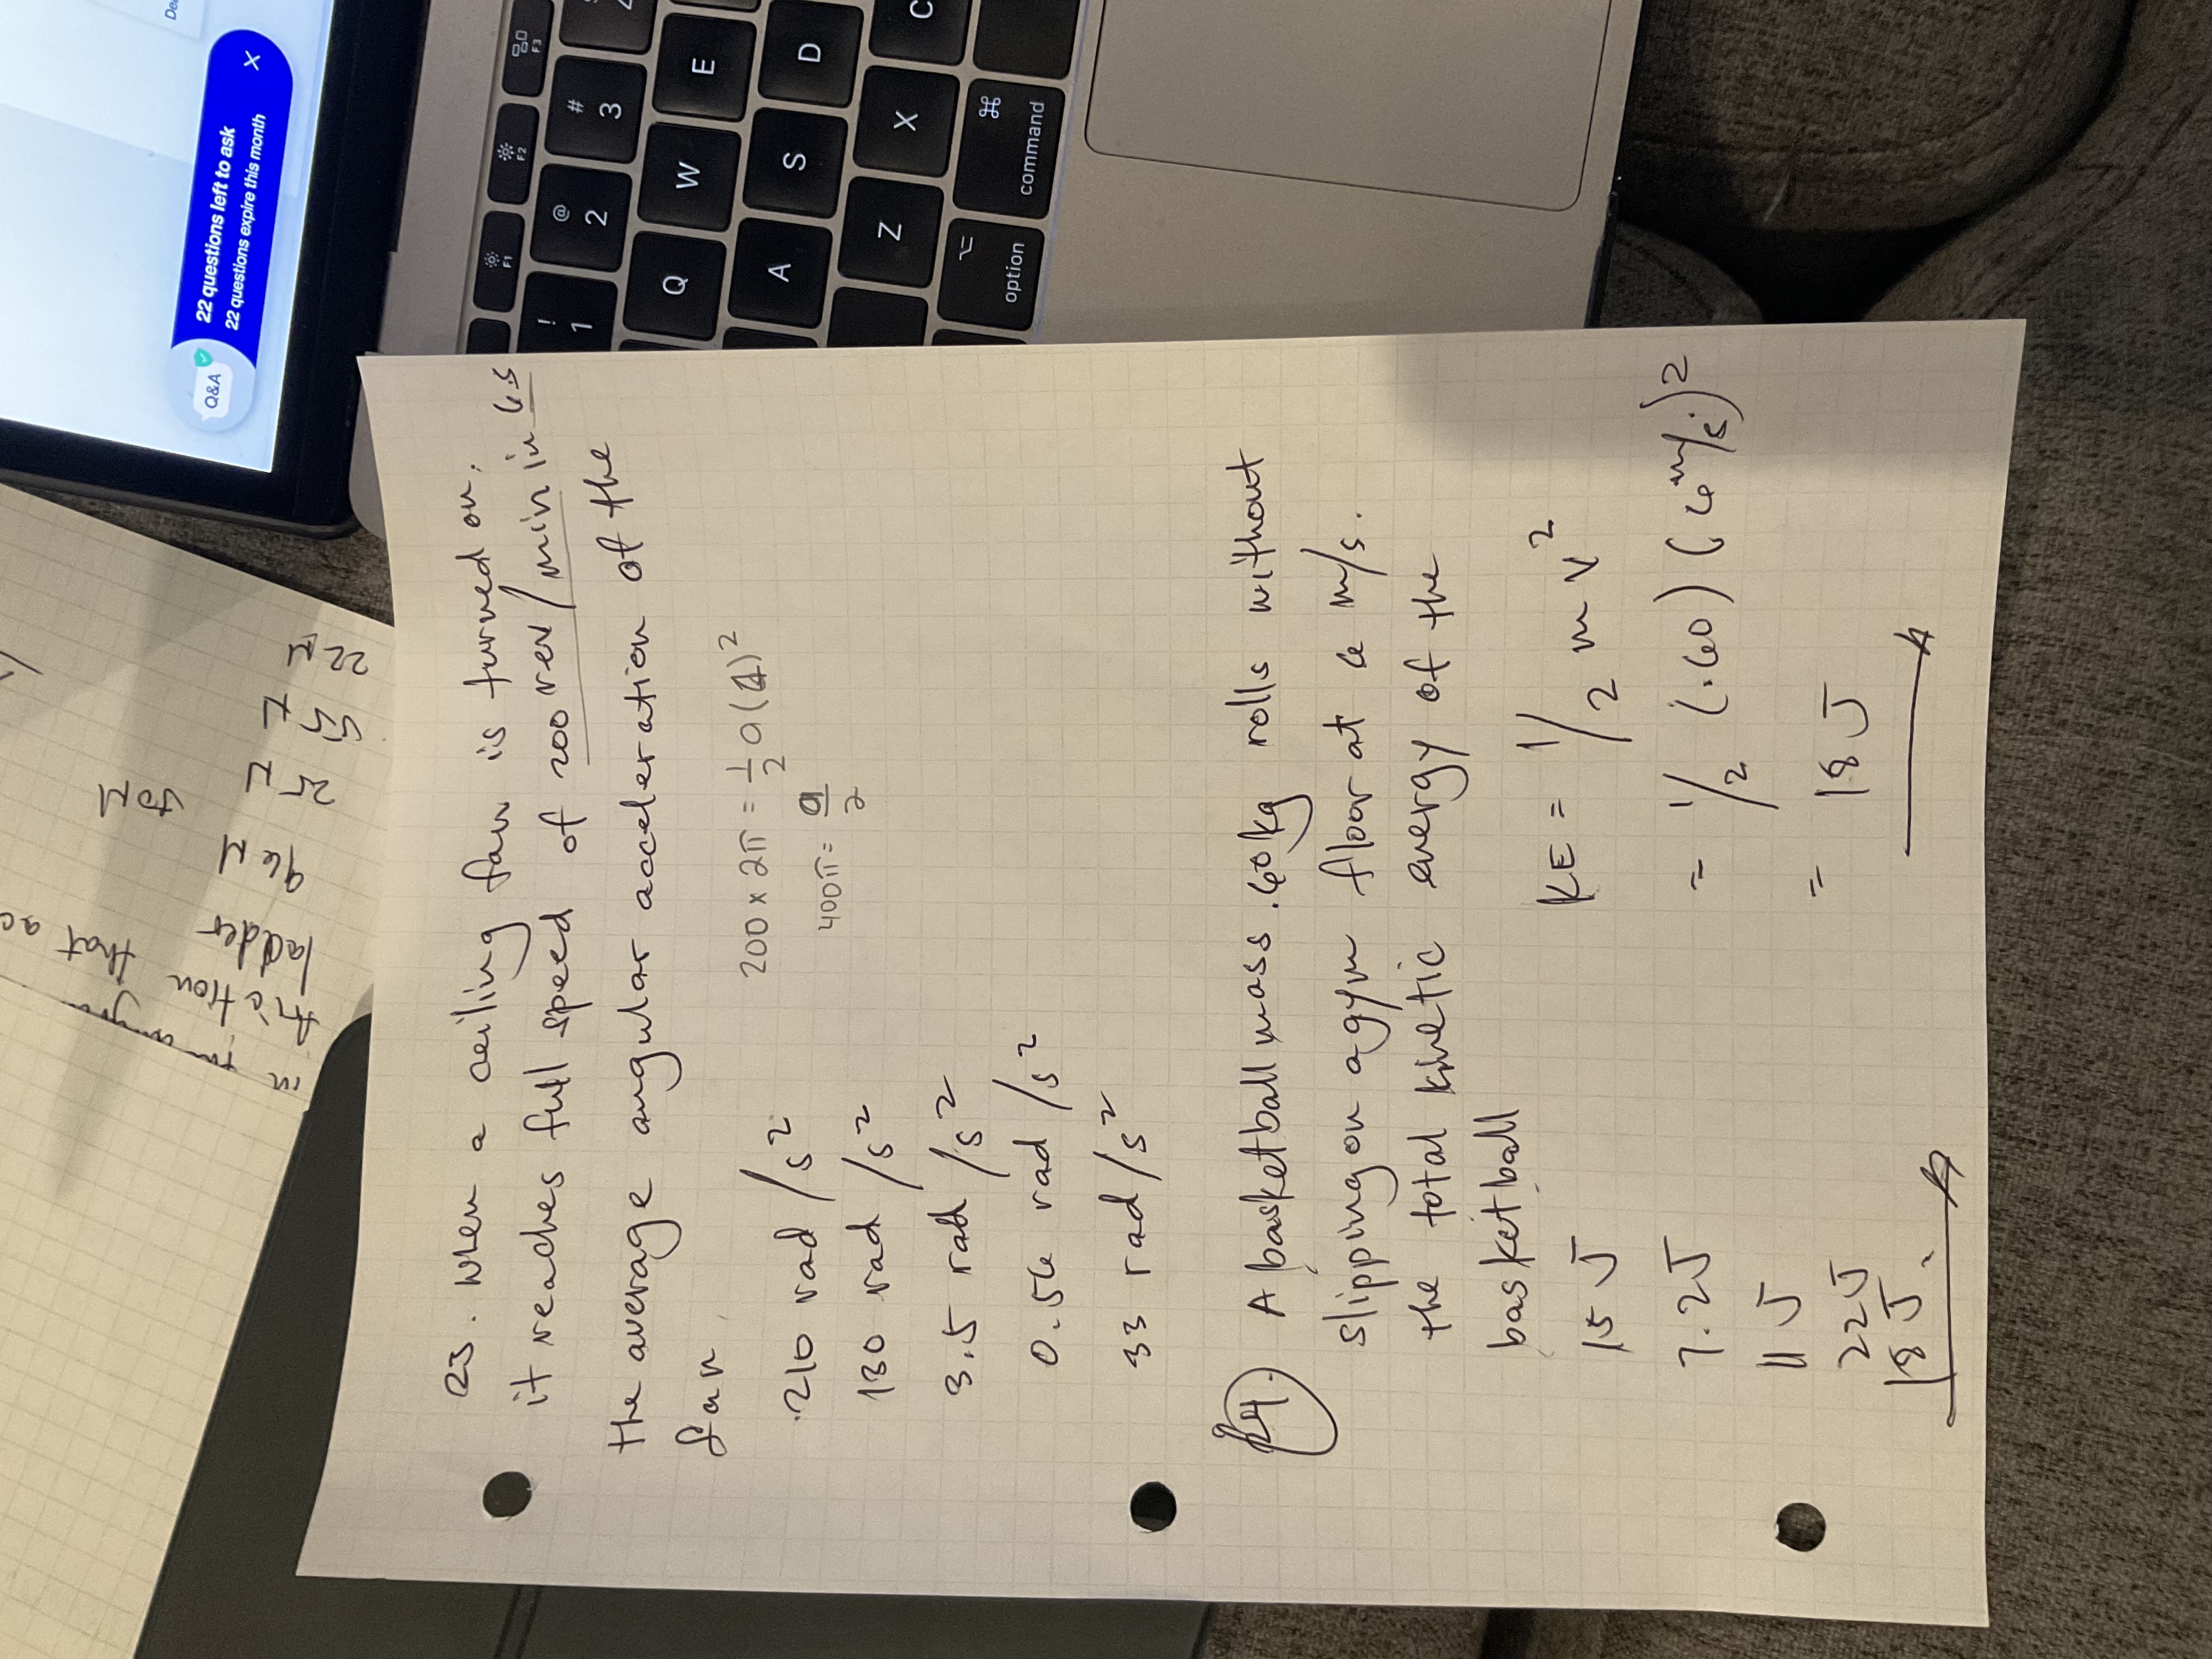 23. When a ceiling fan is turned on,
it reaches full speed of 200 rev/min in 6s
the average angular acceleration of the
fan
200 x 2π = 1/2 a(4)²
400π = a/2
.210 rad/s²
130 rad/s²
3.5 rad/s²
0.56 rad/s²
33 rad/s²
24. A basketball mass .60kg rolls without
slipping on a gym floor at 6 m/s.
the total kinetic energy of the
basketball
KE = 1/2 m v²
= 1/2 (.60) (6 m/s)²
= 18 J
15 J
7.2J
11 J
22J
18 J.
friction that ac
ladder
96 N
45 N
22 N
Q&A
22 questions left to ask
22 questions expire this month
X
F1
F2
F3
!
1
@
2
#
3
Q
W
E
A
S
D
Z
X
C
option
command